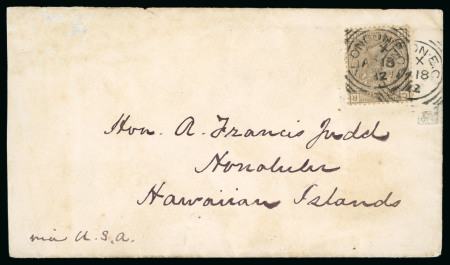 LONDON·E.C
X
18
12
ON·E.C
X
18
2
Hon. A. Francis Judd
Honolulu
Hawaiian Islands
via U.S.A.